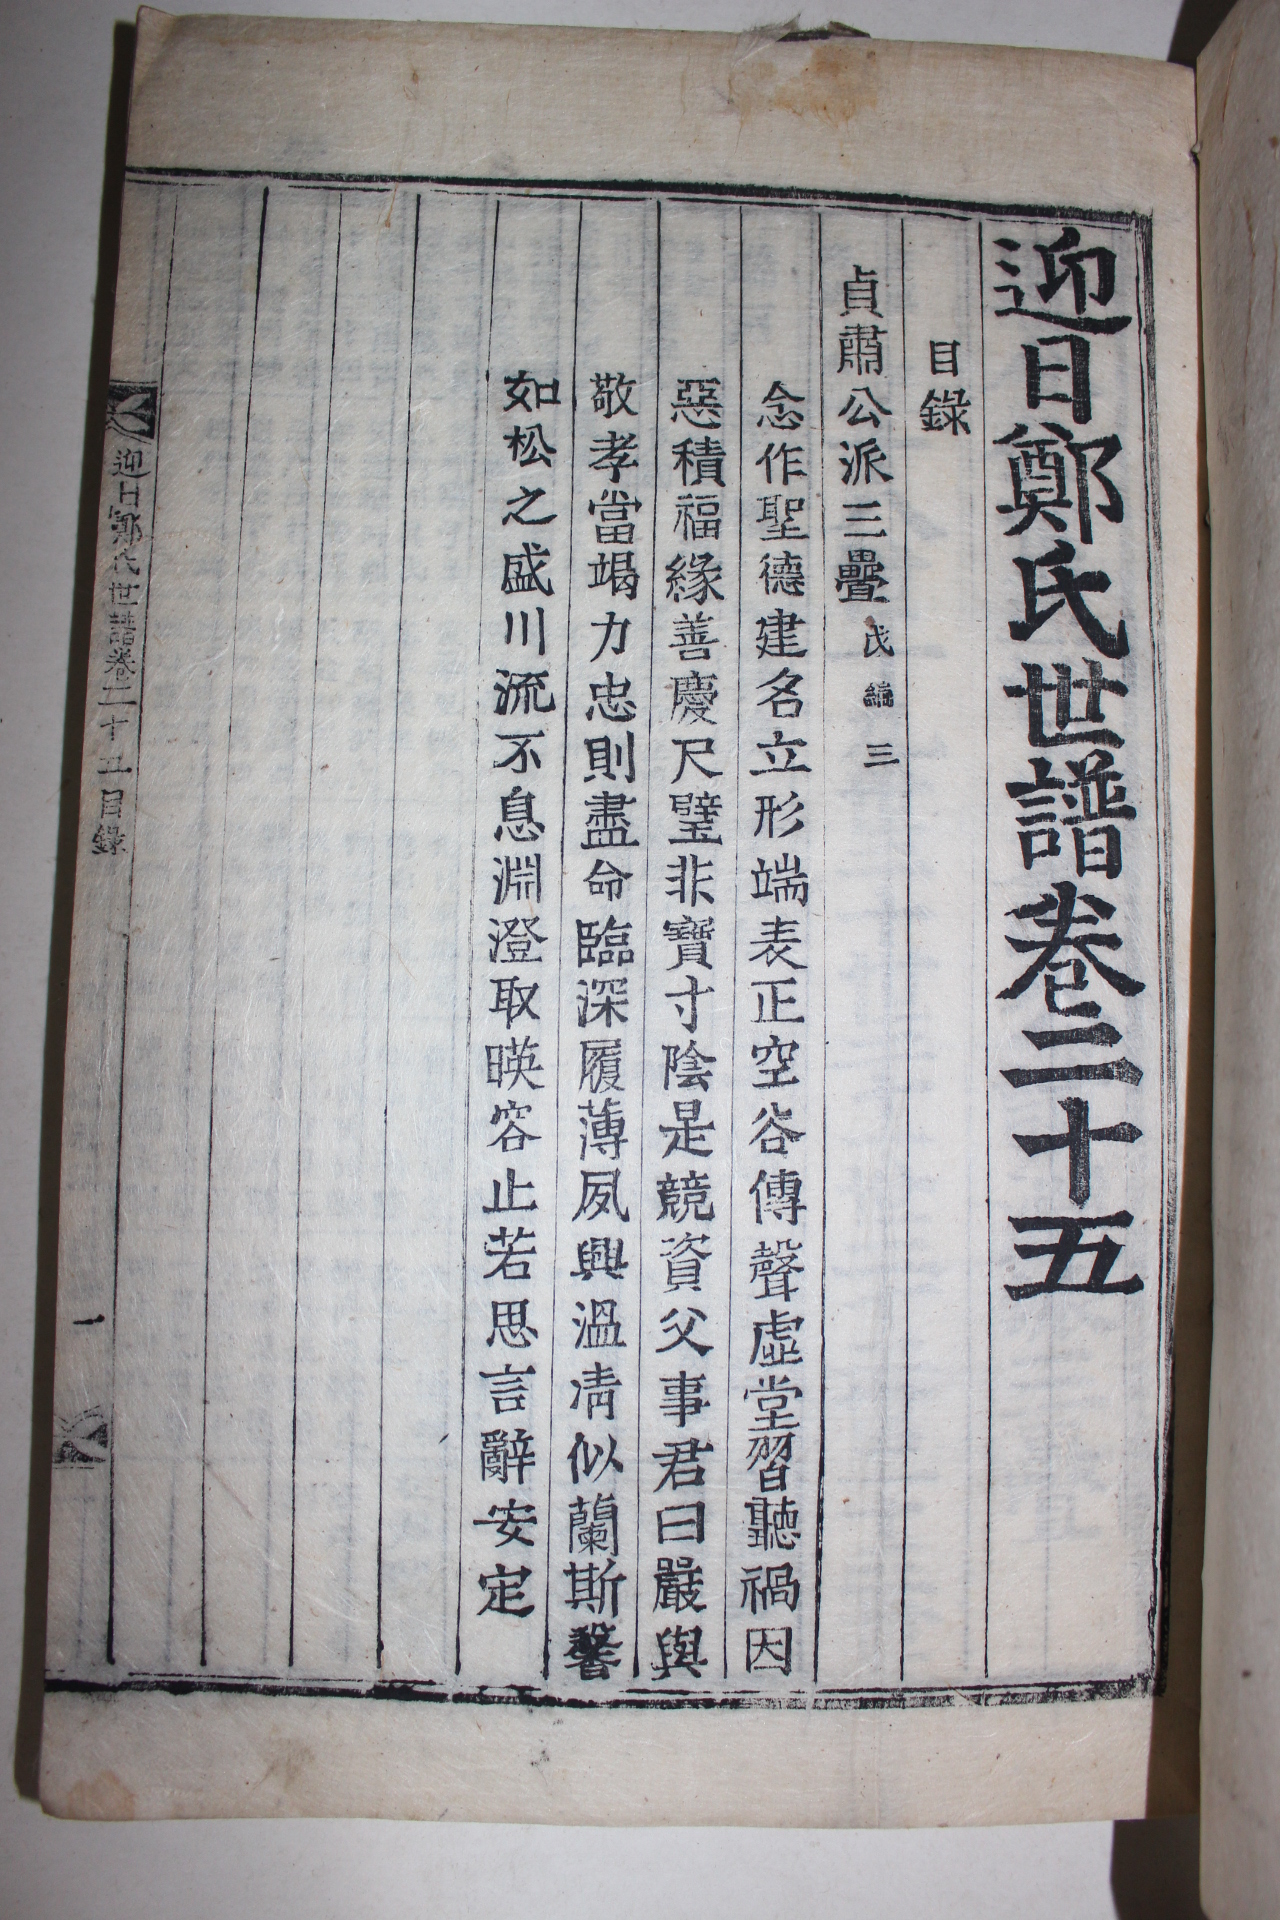 迎日鄭氏世譜卷二十五
目錄
貞肅公派三疊 戊編 三
念作聖德建名立形端表正空谷傳聲虛堂習聽禍因
惡積福緣善慶尺璧非寶寸陰是競資父事君曰嚴與
敬孝當竭力忠則盡命臨深履薄夙興溫凊似蘭斯馨
如松之盛川流不息淵澄取暎容止若思言辭安定
迎日鄭氏世譜卷二十五目錄
一